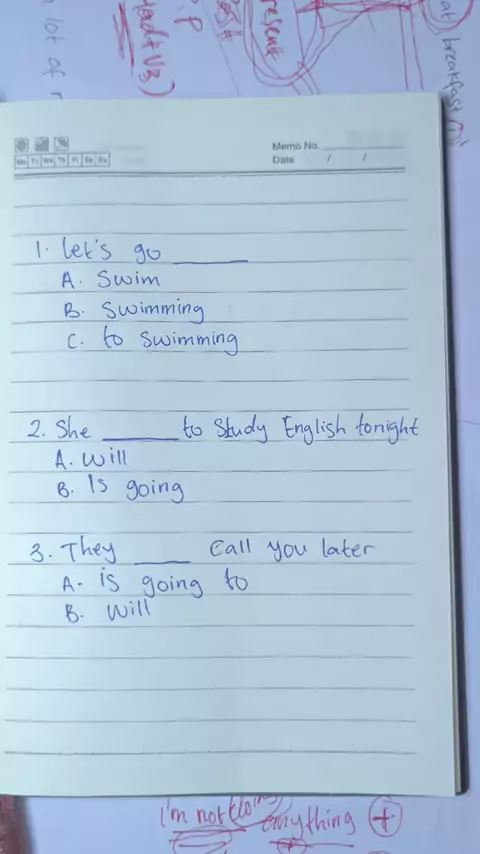 lot of
P.P
present
eat) breakfast
Memo No.
Mo Tu We Th Fr Sa Su
Date / /
1. Let's go ______
A. Swim
B. Swimming
C. to swimming
2. She ______ to Study English tonight
A. Will
B. Is going
3. They ____ Call you later
A. is going to
B. Will
I'm not (doing) anything +